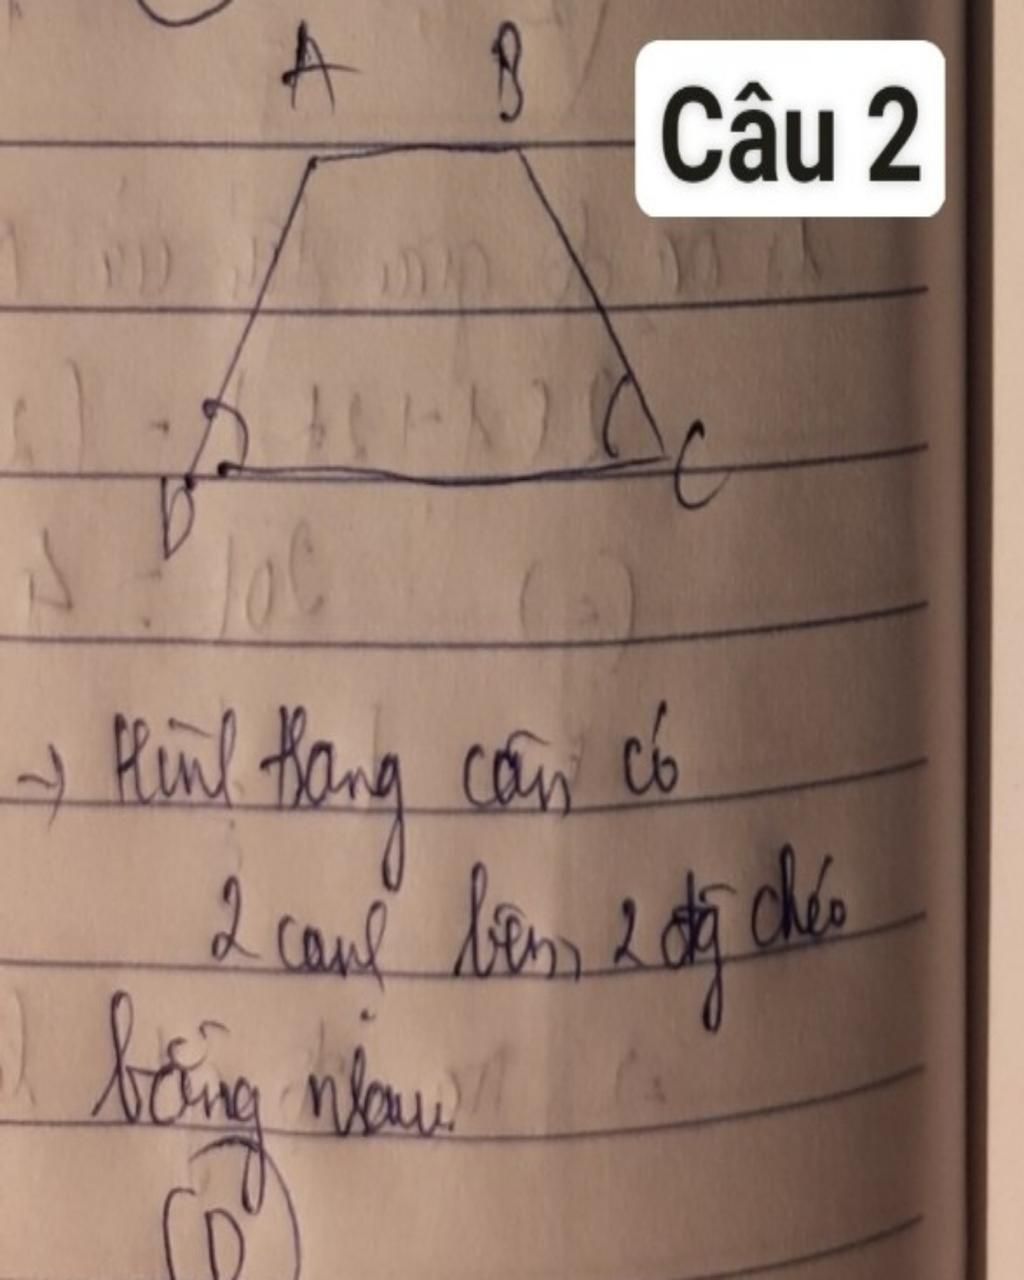 A B
Câu 2
D C
→ Hình thang cân có
2 cạnh bên, 2 đg chéo
bằng nhau.
D